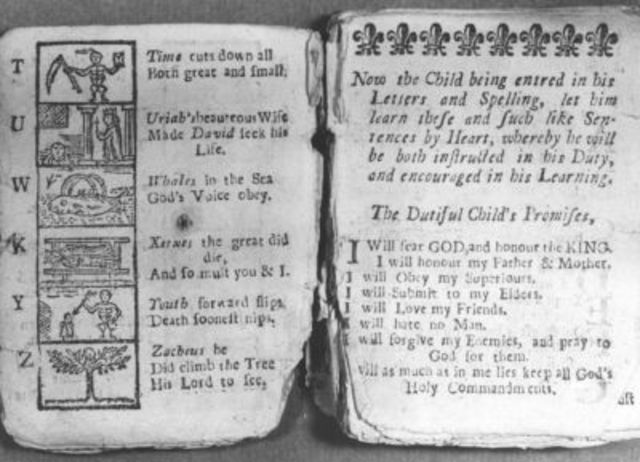 T
Time cuts down all
Both great and small.
U
Uriah's beauteous Wife
Made David seek his
Life.
W
Whales in the Sea
God's Voice obey.
X
Xerxes the great did
die,
And so must you & I.
Y
Youth forward slips
Death soonest nips.
Z
Zacheus he
Did climb the Tree
His Lord to see,
Now the Child being entred in his
Letters and Spelling, let him
learn these and such like Sen-
tences by Heart, whereby he will
be both instructed in his Duty,
and encouraged in his Learning.
The Dutiful Child's Promises,
I Will fear GOD, and honour the KING.
I will honour my Father & Mother.
I will Obey my Superiours.
I will Submit to my Elders.
I will Love my Friends.
I will hate no Man.
I will forgive my Enemies, and pray to
God for them.
will as much as in me lies keep all God's
Holy Commandments.